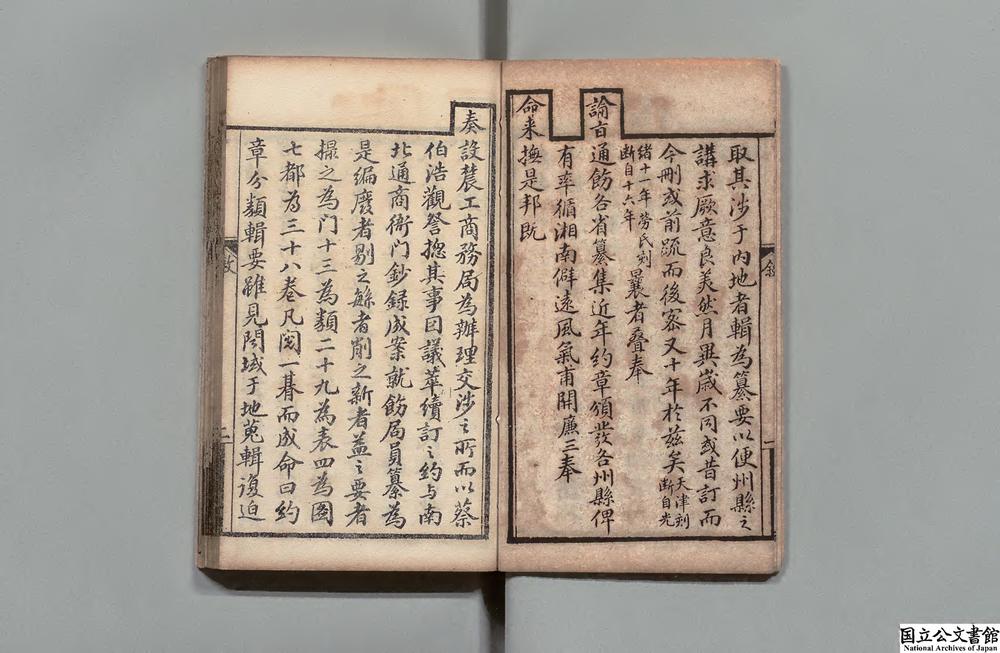 取其涉于內地者輯為纂要以便州縣之
講求厥意良美然月異嵗不同或昔訂而
今刪或前疏而後密又十年於兹矣天津刻断自光
緒十一年勞氏刻断自十六年曩者叠奉
諭旨通飭各省纂集近年約章頒發各州縣俾
有率循湘南僻遠風氣甫開廉三奉
命来撫是邦既
敘
一
奏設農工商務局為辦理交涉之所而以蔡
伯浩觀詧揔其事因議萃續訂之約与南
北通商衙門鈔録成案就飭局員纂為
是編廢者剔之緐者削之新者益之要者
撮之為门十三為類二十九為表四為圖
七都为三十八卷凡閱一朞而成命曰約
章分類輯要雖見閱域于地蒐輯復迫
敘
二
国立公文書館
National Archives of Japan